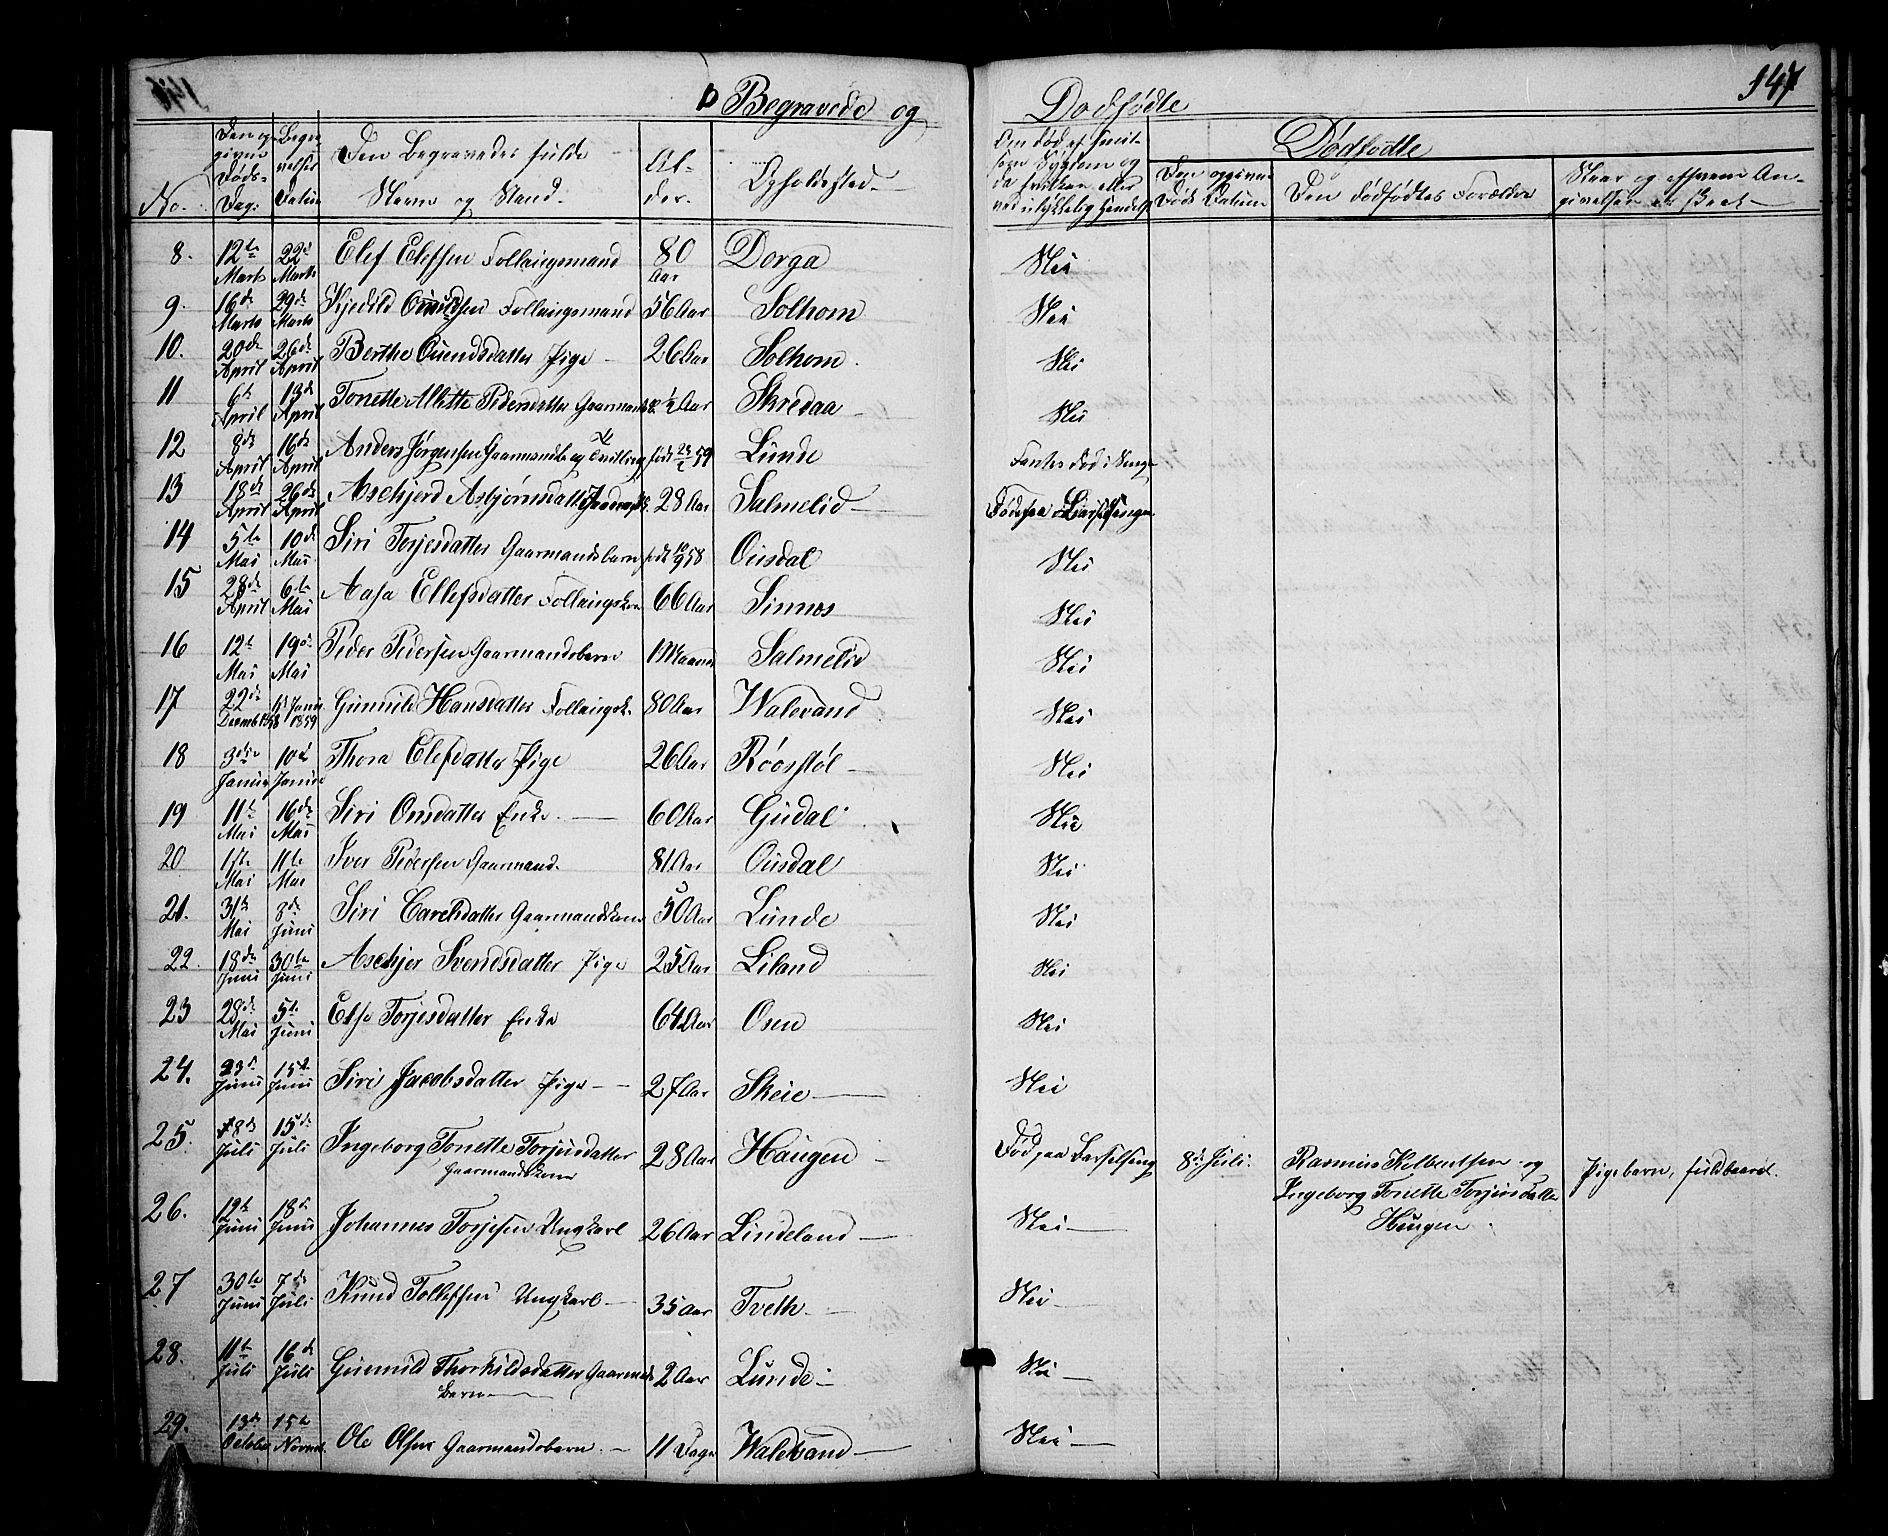 147
Begravede og Dødfødte
No. Den op- givne Døds- Dag. Begra- velses Datum Den Begravedes fulde Navn og Stand. Al- der. Opholdssted. Dødfødte
Den opgivne Døds Datum Den Dødfødtes Forældre
8. 12te Marts 22d Marts Elef Elefsen Follaugsmand 80 Aar Dorga Nei
9. 16de Marts 29de Marts Kjedild Follaugsmand 56 Aar Solhom Nei
10. 20de April 26de April Berthe Ouendsdatter Pige 26 Aar Solhom. Nei
11 6te April 13de April Tonette Alette Pedersdatter ½ Aar Skredaa Nei
12 8de April 16de April Anders Jørgensen født 59 Lunde
13 18de April 26de April Aschjerd Asbjørnsdatter 28 Aar Salmelid
14 5te Mai 10de Mai Siri Torjesdatter Gaarmandsbarn født 58 Ousdal Nei
15 28de April 6te Mai Aasa Ellefsdatter Follaugskone 66 Aar Sinnes Nei
16 12te Mai 19de Mai Peder Pedersen Gaarmandsbarn Salmelid Nei
17 22de 1859 Gunnild Hansdatter Follaugsk. 80 Aar Walevand Nei
18 3die Januar 10de Januar Thora Elefdatter Pige 26 Aar Nei
19 11te Mai 16de Mai Siri Onsdatter Enke. 60 Aar Gudal Nei
20 1ste Mai 11te Mai Iver Pedersen Gaarmand. 81 Aar Ousdal Nei
21. 31te Mai 8de Juni Siri Carelsdatter Gaarmandskone 50 Aar Lunde Nei
22. 18de Juni 30te Juni Aschjer Svendsdatter Pige 25 Aar Liland Nei
23 28de Mai 5te Juni Else Torjesdatter Enke 64 Aar Osen Nei
24. 23d Juni 15de Juni Siri Jacobsdatter Pige 27 Aar Skeie Nei
25. 8de Juli 15de Juli Ingeborg Tonette Torjusdatter Gaarmandskone 28 Aar Haugen Død paa Barselseng 8d Juli. Rasmus og Ingeborg Tonette Torjusdatter Haugen Pigebarn, fuldbaaret.
26. 12te Juni 18de Juni Johannes Torjesen Ungkarl 26 Aar Lindeland Nei
27 30te Juni 7de Juli Knud Tollefsen Ungkarl 35 Aar Tveth. Nei
28. 11te Juli 16de Juli Gunnild Thorkildsdatter Gaarmands barn 2 Aar Lunde Nei
29. 13de October 15de Novemb. Ole Olsen Gaarmandsbarn. 11 Dage Walevand Nei